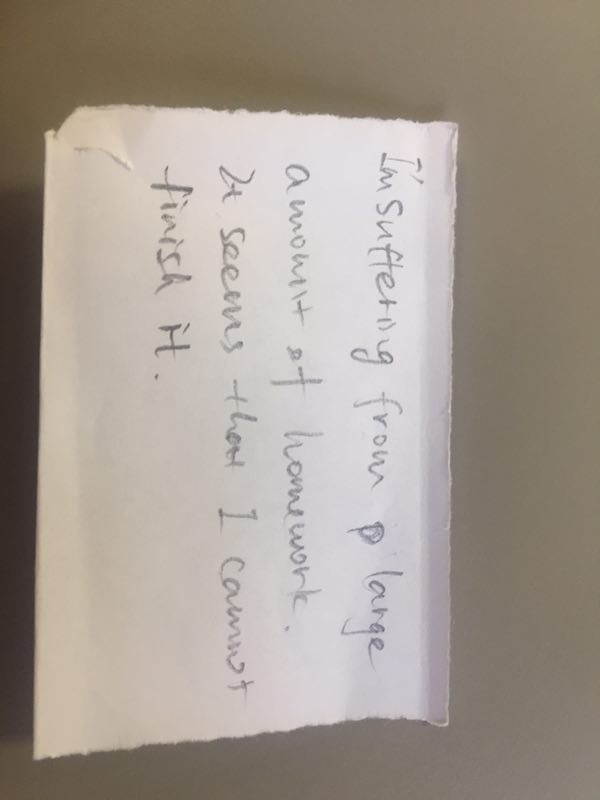 I'm suffering from a large
amount of homework.
It seems that I cannot
finish it.